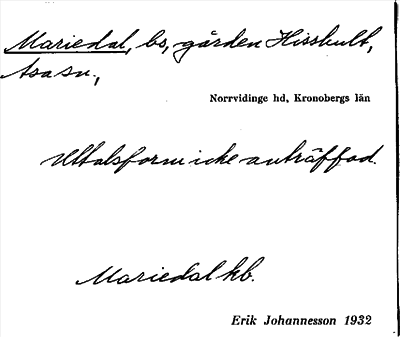 Mariedal, bs, gården Hisshult,
Asa sn.,
Norrvidinge hd, Kronobergs län
Uttalsform icke anträffad.
Mariedal kb.
Erik Johannesson 1932